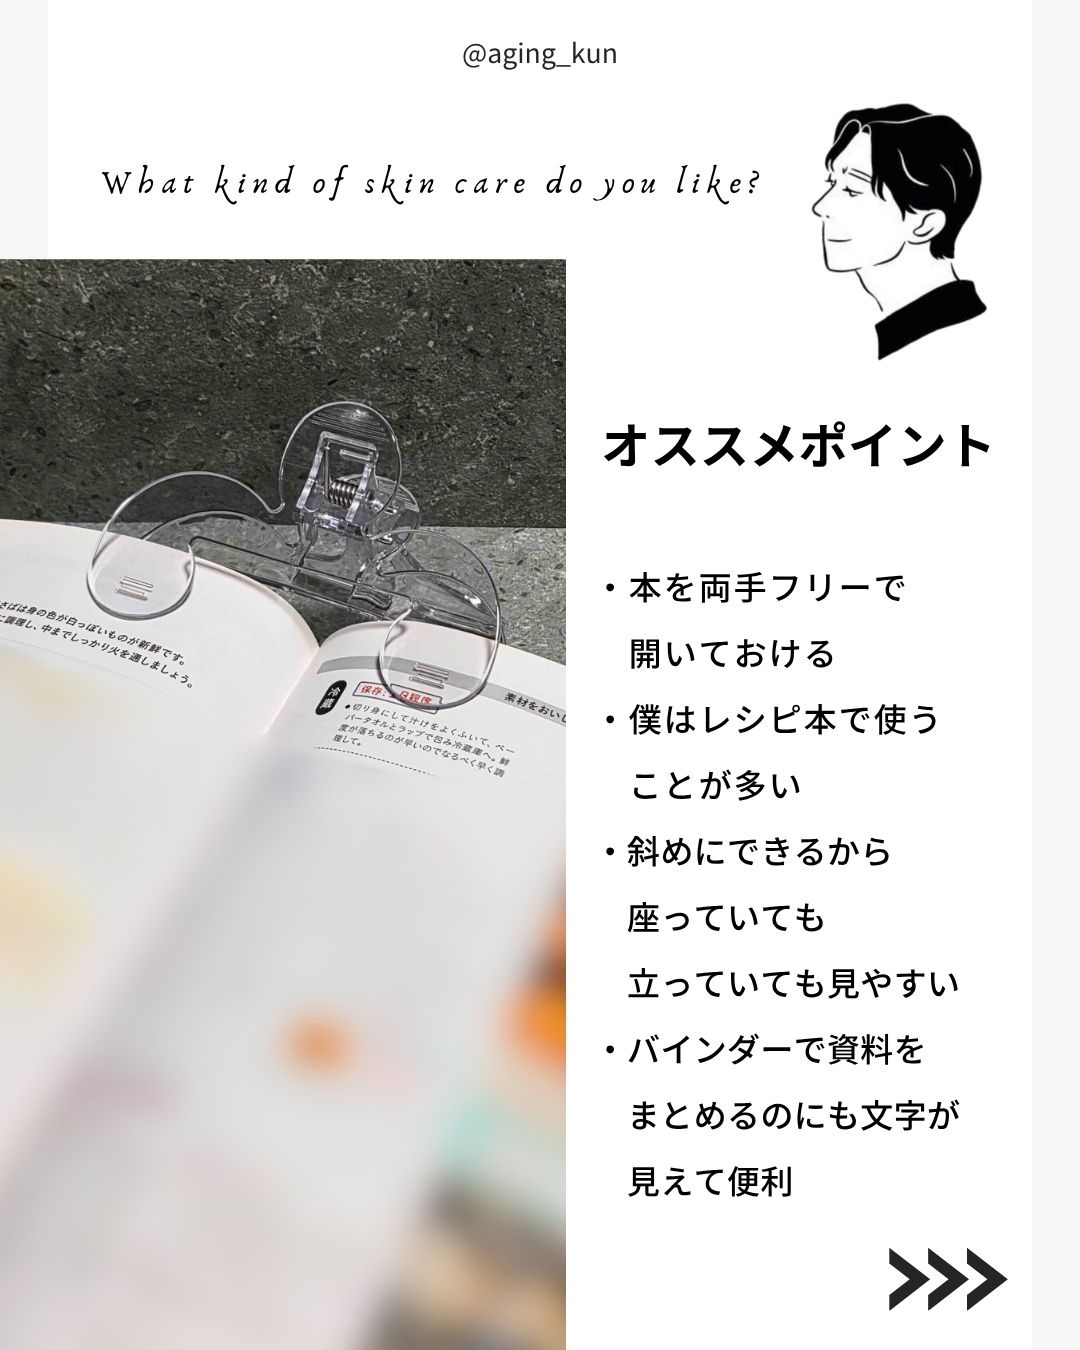 @aging_kun
What kind of skin care do you like?
オススメポイント
・本を両手フリーで
開いておける
・僕はレシピ本で使う
ことが多い
・斜めにできるから
座っていても
立っていても見やすい
・バインダーで資料を
まとめるのにも文字が
見えて便利
さばは身の色が白っぽいものが新鮮です。
に調理し、中までしっかり火を通しましょう。
素材をおいし
冷蔵
保存: 日程度
●切り身にして汁けをよくふいて、ペー
パータオルとラップで包み冷蔵庫へ。鮮
度が落ちるのが早いのでなるべく早く調
理して。